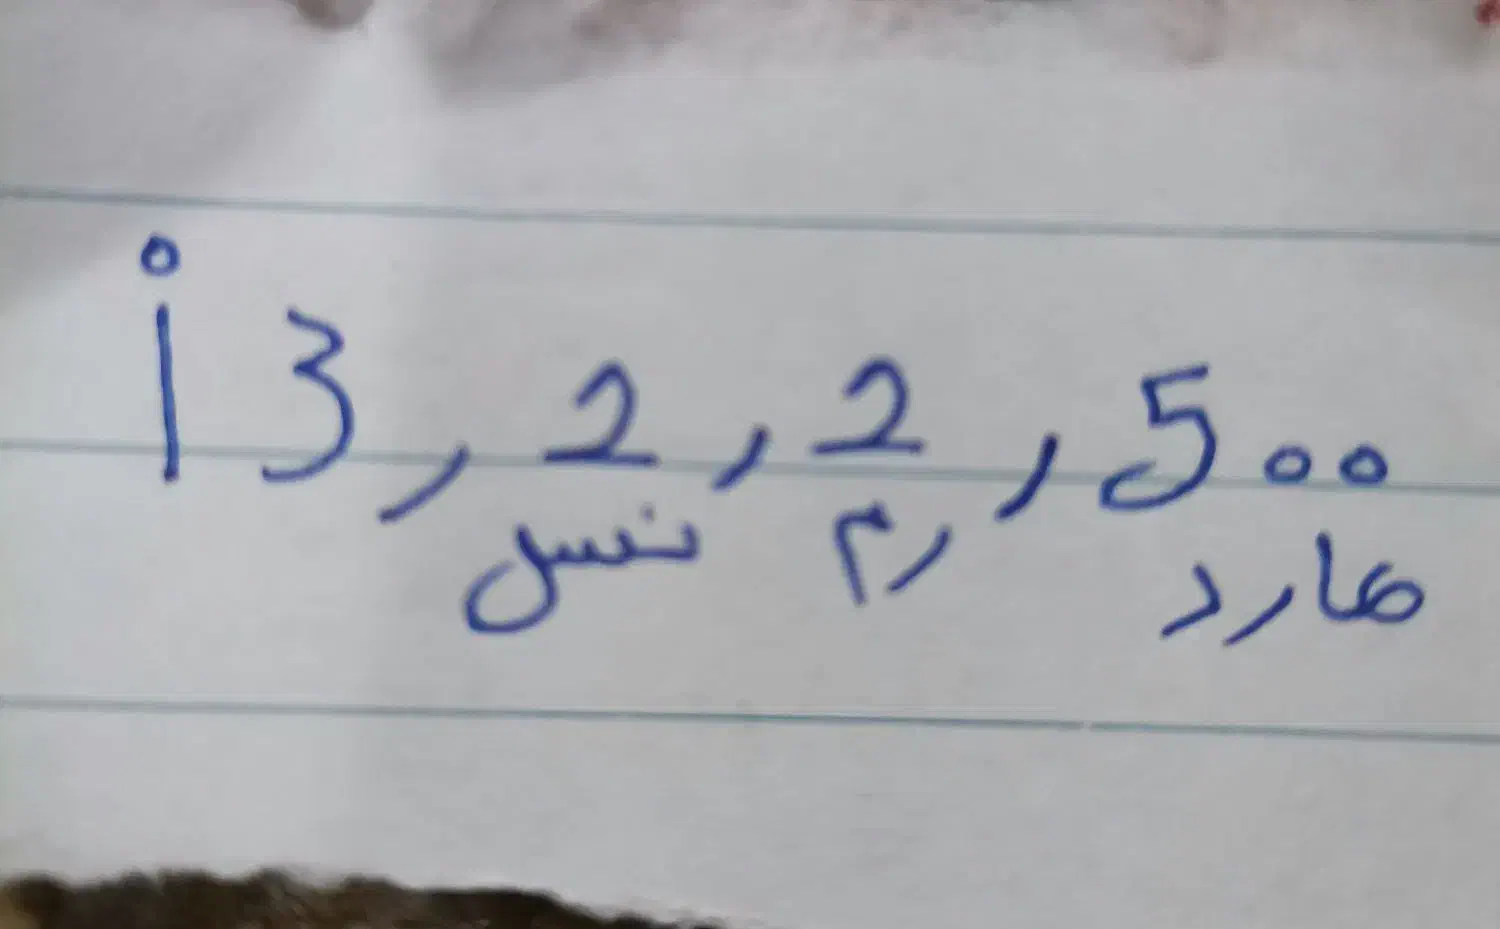 i3, 2, 2, 500
نسل رم هارد